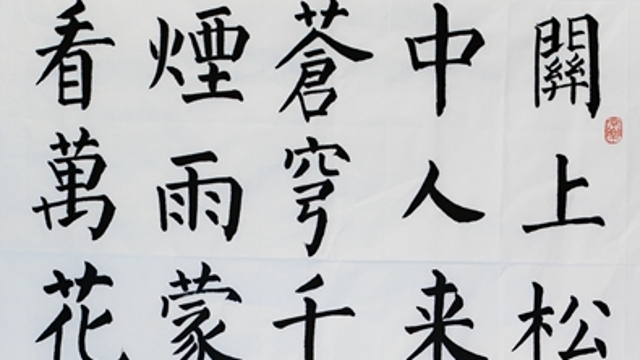 關上松
中人来
蒼穹千
煙雨蒙
看萬花